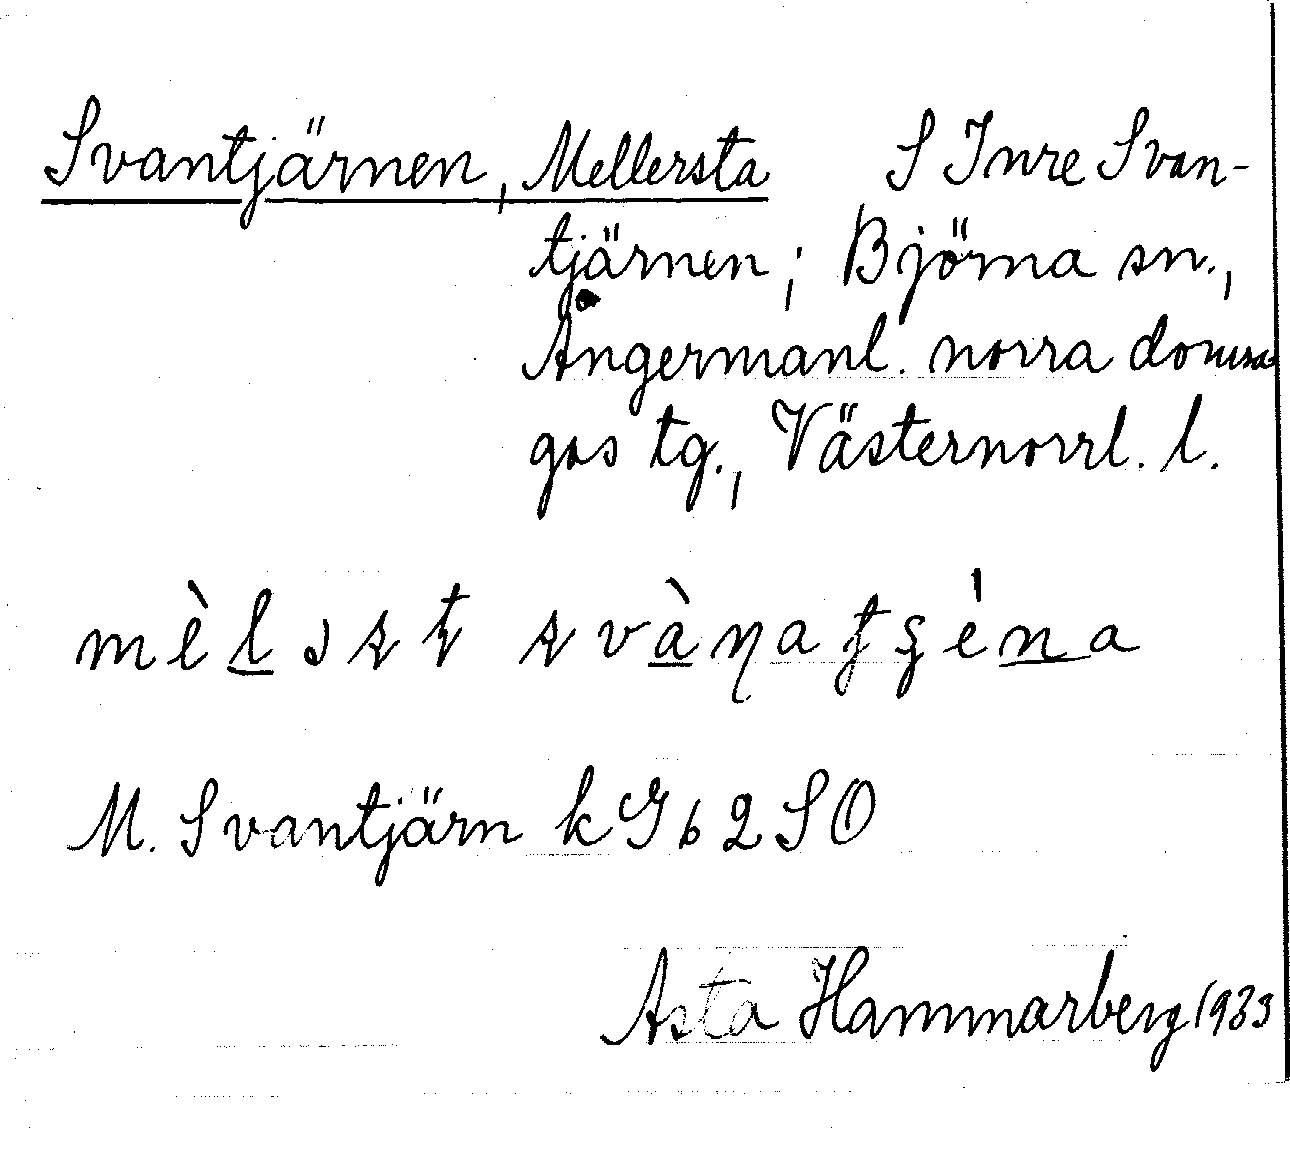 Svantjärnen, Mellersta S Inre Svan-
tjärnen; Björna sn.,
Ångermanl. norra domsa-
gas tg., Västernorrl. l.
M. Svantjärn k G6 2 SO
Asta Hammarberg 1933